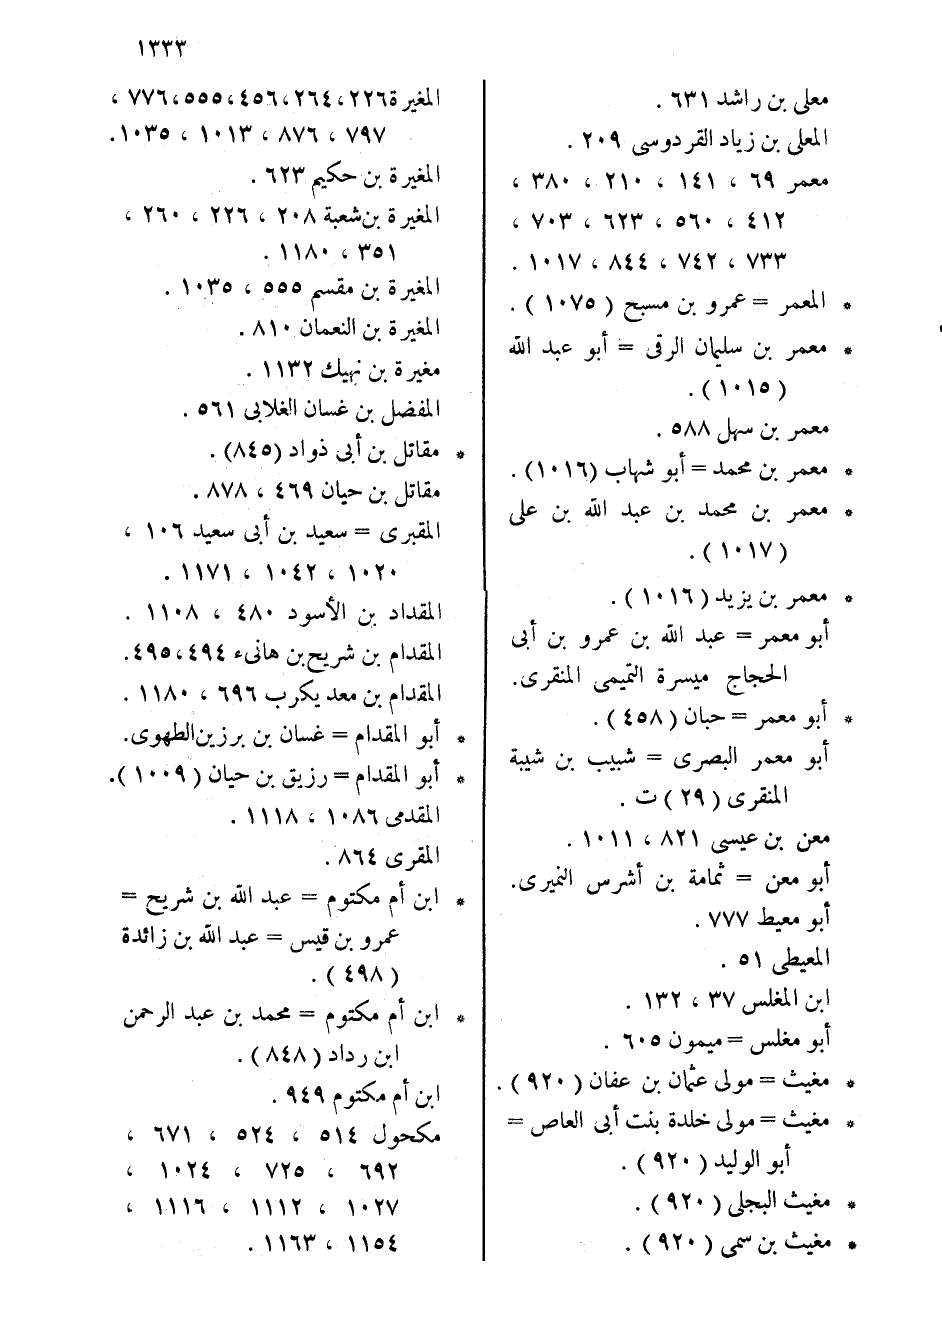 ١٣٣٣
معلى بن راشد ٦٣١ .
المعلى بن زياد القردوسى ٢٠٩ .
معمر ٦٩ ، ١٤١ ، ٢١٠ ، ٣٨٠ ،
٤١٢ ، ٥٦٠ ، ٦٢٣ ، ٧٠٣ ،
٧٣٣ ، ٧٤٢ ، ٨٤٤ ، ١٠١٧ .
* المعمر = عمرو بن مسبح ( ١٠٧٥ ) .
* معمر بن سليمان الرقى = أبو عبد الله
( ١٠١٥ ) .
معمر بن سهل ٥٨٨ .
* معمر بن محمد = أبو شهاب (١٠١٦) .
* معمر بن محمد بن عبد الله بن على
( ١٠١٧ ) .
* معمر بن يزيد ( ١٠١٦ ) .
أبو معمر = عبد الله بن عمرو بن أبى
الحجاج ميسرة التميمى المنقرى.
* أبو معمر = حبان ( ٤٥٨ ) .
أبو معمر البصرى = شبيب بن شيبة
المنقرى ( ٢٩ ) ت .
معن بن عيسى ٨٢١ ، ١٠١١ .
أبو معن = ثمامة بن أشرس النميرى.
أبو معيط ٧٧٧ .
المعيطى ٥١ .
ابن المغلس ٣٧ ، ١٣٢ .
أبو مغلس = ميمون ٦٠٥ .
* مغيث = مولى عثمان بن عفان ( ٩٢٠ ) .
* مغيث = مولى خلدة بنت أبى العاص =
أبو الوليد ( ٩٢٠ ) .
* مغيث البجلى ( ٩٢٠ ) .
* مغيث بن سمى ( ٩٢٠ ) .
المغيرة ٢٢٦ ، ٢٦٤ ، ٤٥٦ ، ٥٥٥ ، ٧٧٦ ،
٧٩٧ ، ٨٧٦ ، ١٠١٣ ، ١٠٣٥ .
المغيرة بن حكيم ٦٢٣ .
المغيرة بن شعبة ٢٠٨ ، ٢٢٦ ، ٢٦٠ ،
٣٥١ ، ١١٨٠ .
المغيرة بن مقسم ٥٥٥ ، ١٠٣٥ .
المغيرة بن النعمان ٨١٠ .
مغيرة بن نهيك ١١٣٢ .
المفضل بن غسان الغلابى ٥٦١ .
* مقاتل بن أبى ذواد (٨٤٥) .
مقاتل بن حيان ٤٦٩ ، ٨٧٨ .
المقبرى = سعيد بن أبى سعيد ١٠٦ ،
١٠٢٠ ، ١٠٤٢ ، ١١٧١ .
المقداد بن الأسود ٤٨٠ ، ١١٠٨ .
المقدام بن شريح بن هانىء ٤٩٤ ، ٤٩٥ .
المقدام بن معد يكرب ٦٩٦ ، ١١٨٠ .
* أبو المقدام = غسان بن برزين الطهوى.
* أبو المقدام = رزيق بن حيان ( ١٠٠٩ ) .
المقدمى ١٠٨٦ ، ١١١٨ .
المقرى ٨٦٤ .
* ابن أم مكتوم = عبد الله بن شريح =
عمرو بن قيس = عبد الله بن زائدة
( ٤٩٨ ) .
* ابن أم مكتوم = محمد بن عبد الرحمن
ابن رداد ( ٨٤٨ ) .
ابن أم مكتوم ٩٤٩ .
مكحول ٥١٤ ، ٥٢٤ ، ٦٧١ ،
٦٩٢ ، ٧٢٥ ، ١٠٢٤ ،
١٠٢٧ ، ١١١٢ ، ١١١٦ ،
١١٥٤ ، ١١٦٣ .